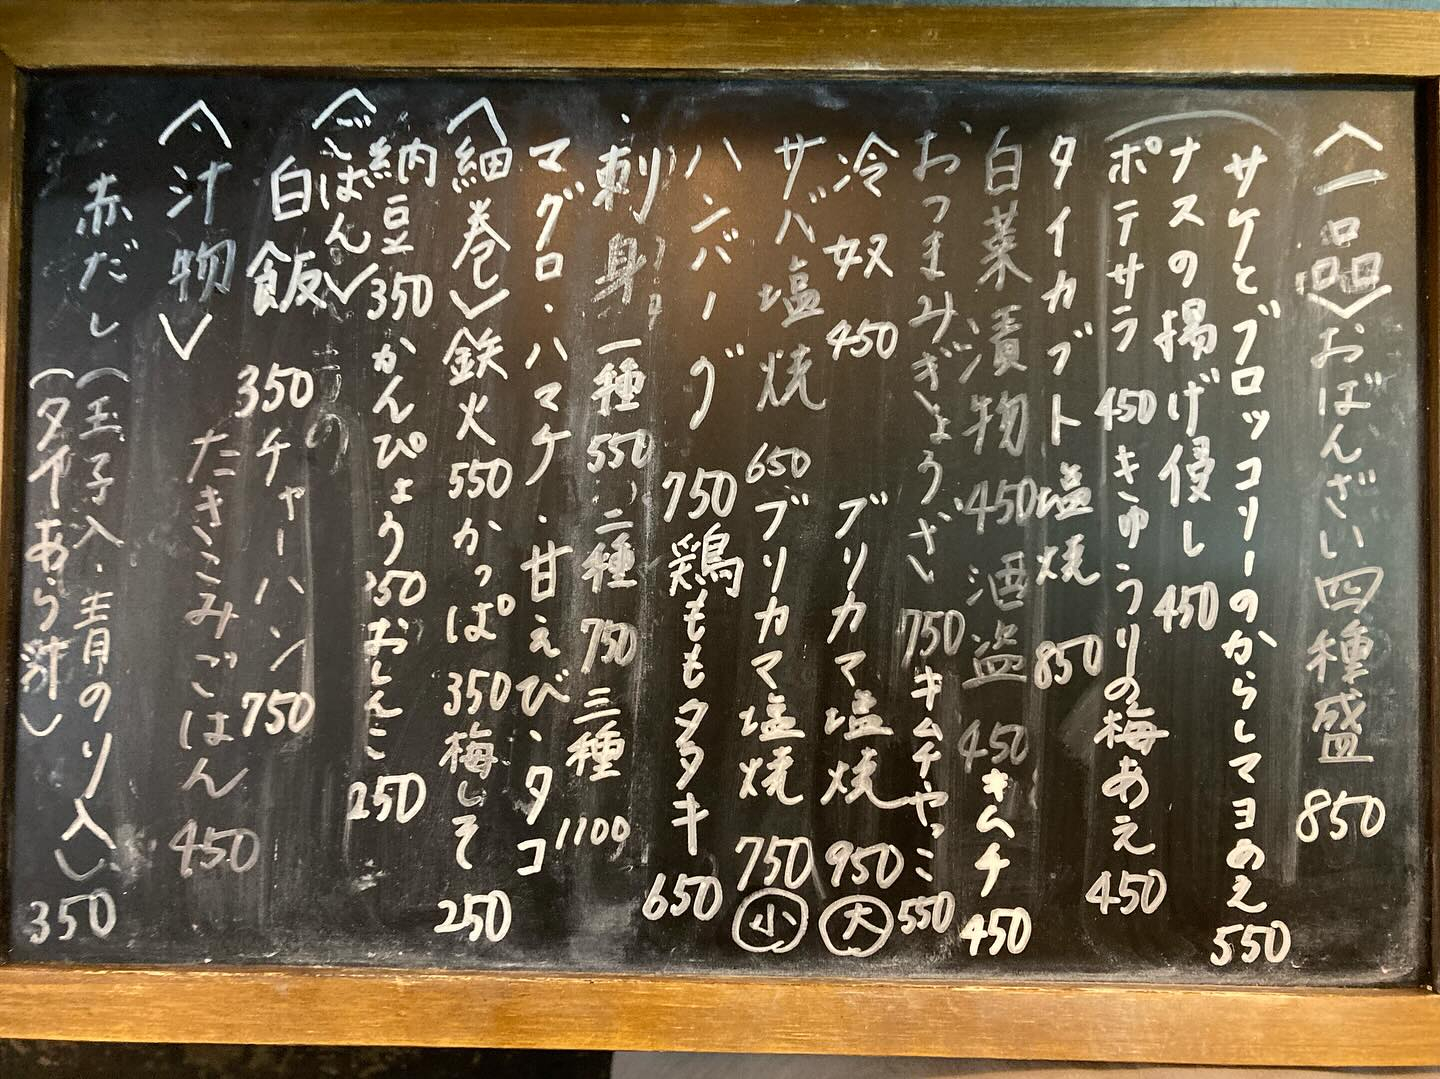 〈一品〉おばんざい四種盛 850
サケとブロッコリーのからしマヨあえ 550
ナスの揚げ侵し 450
ポテサラ 450 きゅうりの梅あえ 450
タイカブト塩焼 850
白菜漬物 450 酒盗 450 キムチ 450
おつまみぎょうざ 750 キムチやっこ 550
冷奴 450 ブリカマ塩焼 950 大
サバ塩焼 650 ブリカマ塩焼 750 小
ハンバーグ 750 鶏ももタタキ 650
刺身 一種 550 二種 750 三種 1100
マグロ・ハマチ・甘えび・タコ
〈細巻〉鉄火 550 かっぱ 350 梅しそ 250
納豆 350 かんぴょう 350 おしんこ 250
〈ごはん〉
白飯 350 チャーハン 750
たきこみごはん 450
〈汁物〉
赤だし (玉子入・青のり入) 350
(タイあら汁)